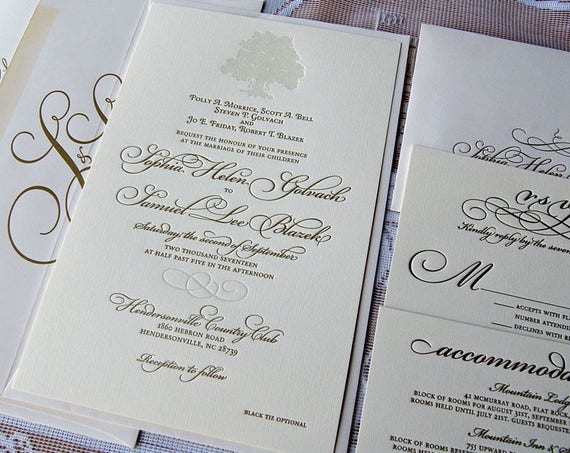 Polly A. Morrice, Scott A. Bell
Steven P. Golvach
and
Jo E. Friday, Robert T. Blazek
request the honour of your presence
at the marriage of their children
Sophia Helen Golvach
to
Samuel Lee Blazek
Saturday, the second of September
two thousand seventeen
at half past five in the afternoon
&
Hendersonville Country Club
1860 Hebron Road
Hendersonville, NC 28739
Reception to follow
black tie optional
S&S
Sophia Helen
rsv
Kindly reply by the seve
M
accepts with
number attending
declines with
accommoda
Mountain Lodg
42 McMurray Road, Flat Rock
block of rooms for August 31st, September
rooms held until July 31st. Guests requested
Mountain Inn & S
755 Upward
block of rooms reserv